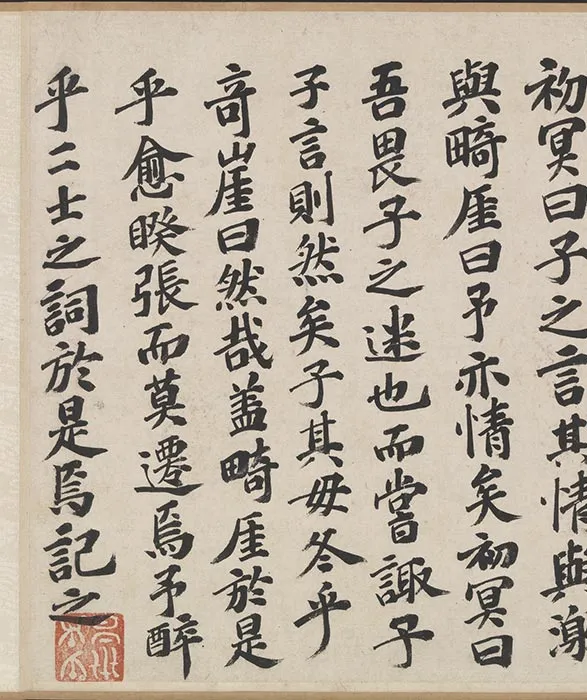 初冥曰子之言其情與
與畸厓曰予亦情矣初冥曰
吾畏子之迷也而嘗諏子
子言則然矣子其毋冬乎
竒崖曰然哉盖畸厓於是
乎愈睽張而莫遷焉予醉
乎二士之詞於是焉記之